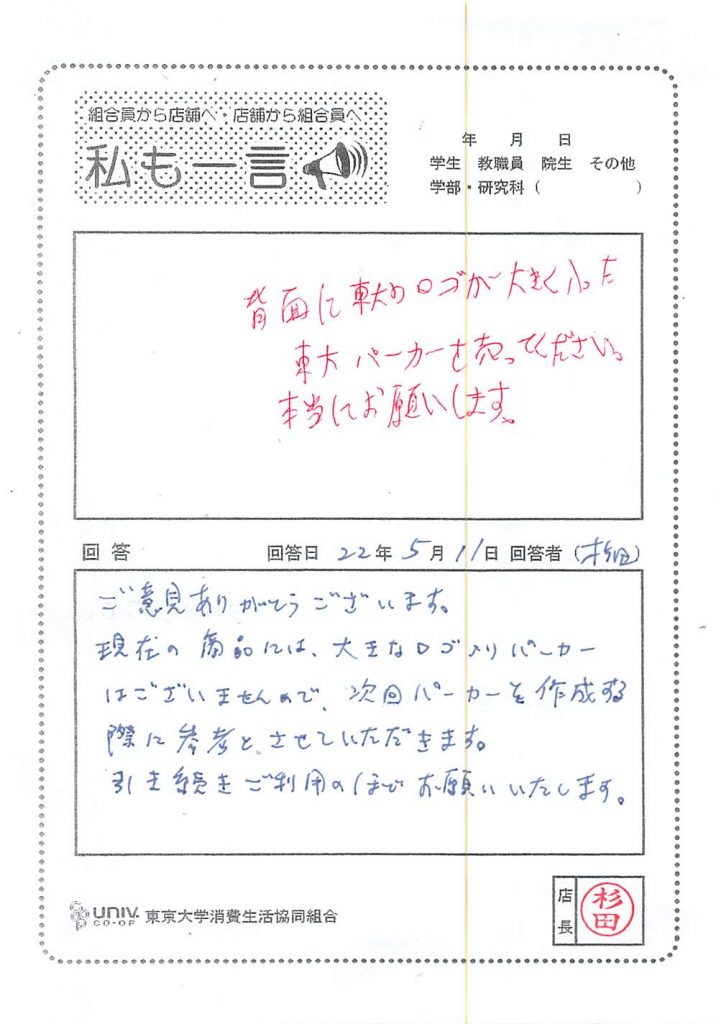 組合員から店舗へ・店舗から組合員へ
私も一言
年 月 日
学生 教職員 院生 その他
学部・研究科（ ）
背面に東大のロゴが大きく入った
東大パーカーを売ってください。
本当にお願いします。
回答 回答日 22年 5月 11日 回答者（杉田）
ご意見ありがとうございます。
現在の商品には、大きなロゴ入りパーカー
はございませんので、次回パーカーを作成する
際に参考とさせていただきます。
引き続きご利用のほどお願いいたします。
UNIV. CO-OP 東京大学消費生活協同組合
店長 杉田